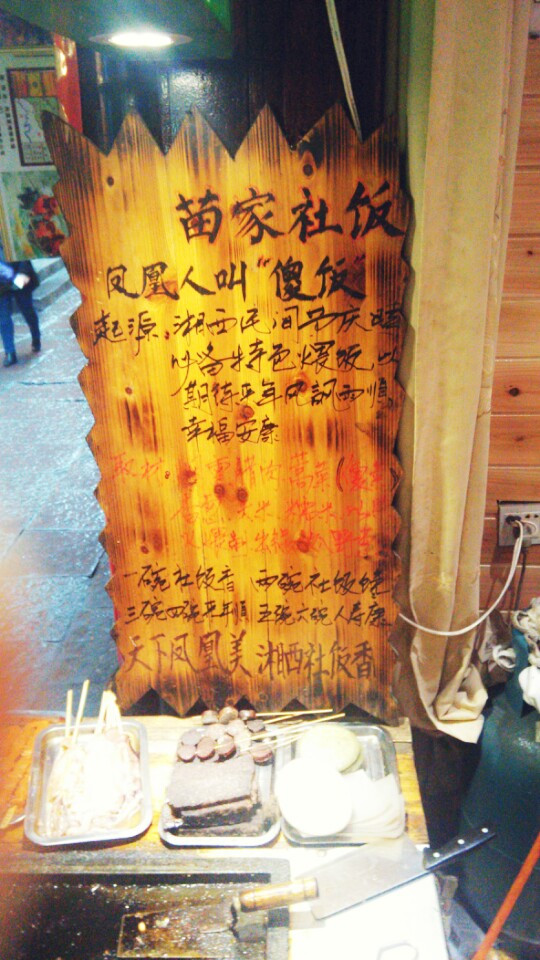 苗家社饭
凤凰人叫“傻饭”
起源：湘西民间节庆时
以备特色煨饭，以
期待来年风调雨顺
幸福安康
取材： 腊肉 蒿菜
大米 糯米
一碗社饭香 两碗社饭
三碗四碗来年顺 五碗六碗人寿康
天下凤凰美 湘西社饭香